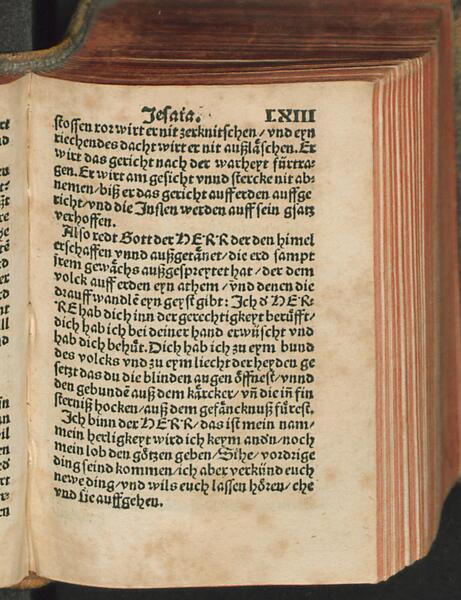 Jesaia. LXIII
stossen ror wirt er nit zerknitschen / vnd eyn
riechendes dacht wirt er nit außläschen. Er
wirt das gericht nach der warheyt fürtra-
gen. Er wirt am gesicht vnnd stercke nit ab-
nemen / biß er das gericht auff erden auffge
richt / vnd die Inslen werden auff sein gsatz
verhoffen.
Also redt Gott der HERR der den himel
erschaffen vnnd außgetänet / die erd sampt
jrem gewächs außgespreytet hat / der dem
volck auff erden eyn athem / vnd denen die
drauff wandlē eyn geyst gibt: Ich d HER-
RE hab dich inn der gerechtigkeyt berüfft /
dich hab ich bei deiner hand erwüscht vnd
hab dich behüt. Dich hab ich zu eym bund
des volcks vnd zu eym liecht der heyden ge
setzt das du die blinden augen öffnest / vnnd
den gebundē auß dem kärcker / vñ die iñ fin
sterniß hocken / auß dem gefäncknuß fürest.
Ich binn der HERR / das ist mein nam /
mein herligkeyt wird ich keym andn / noch
mein lob den götzen geben / Sihe / vordrige
ding seind kommen / ich aber verkünd euch
newe ding / vnd wils euch lassen hören / ehe
vnd sie auffgehen.